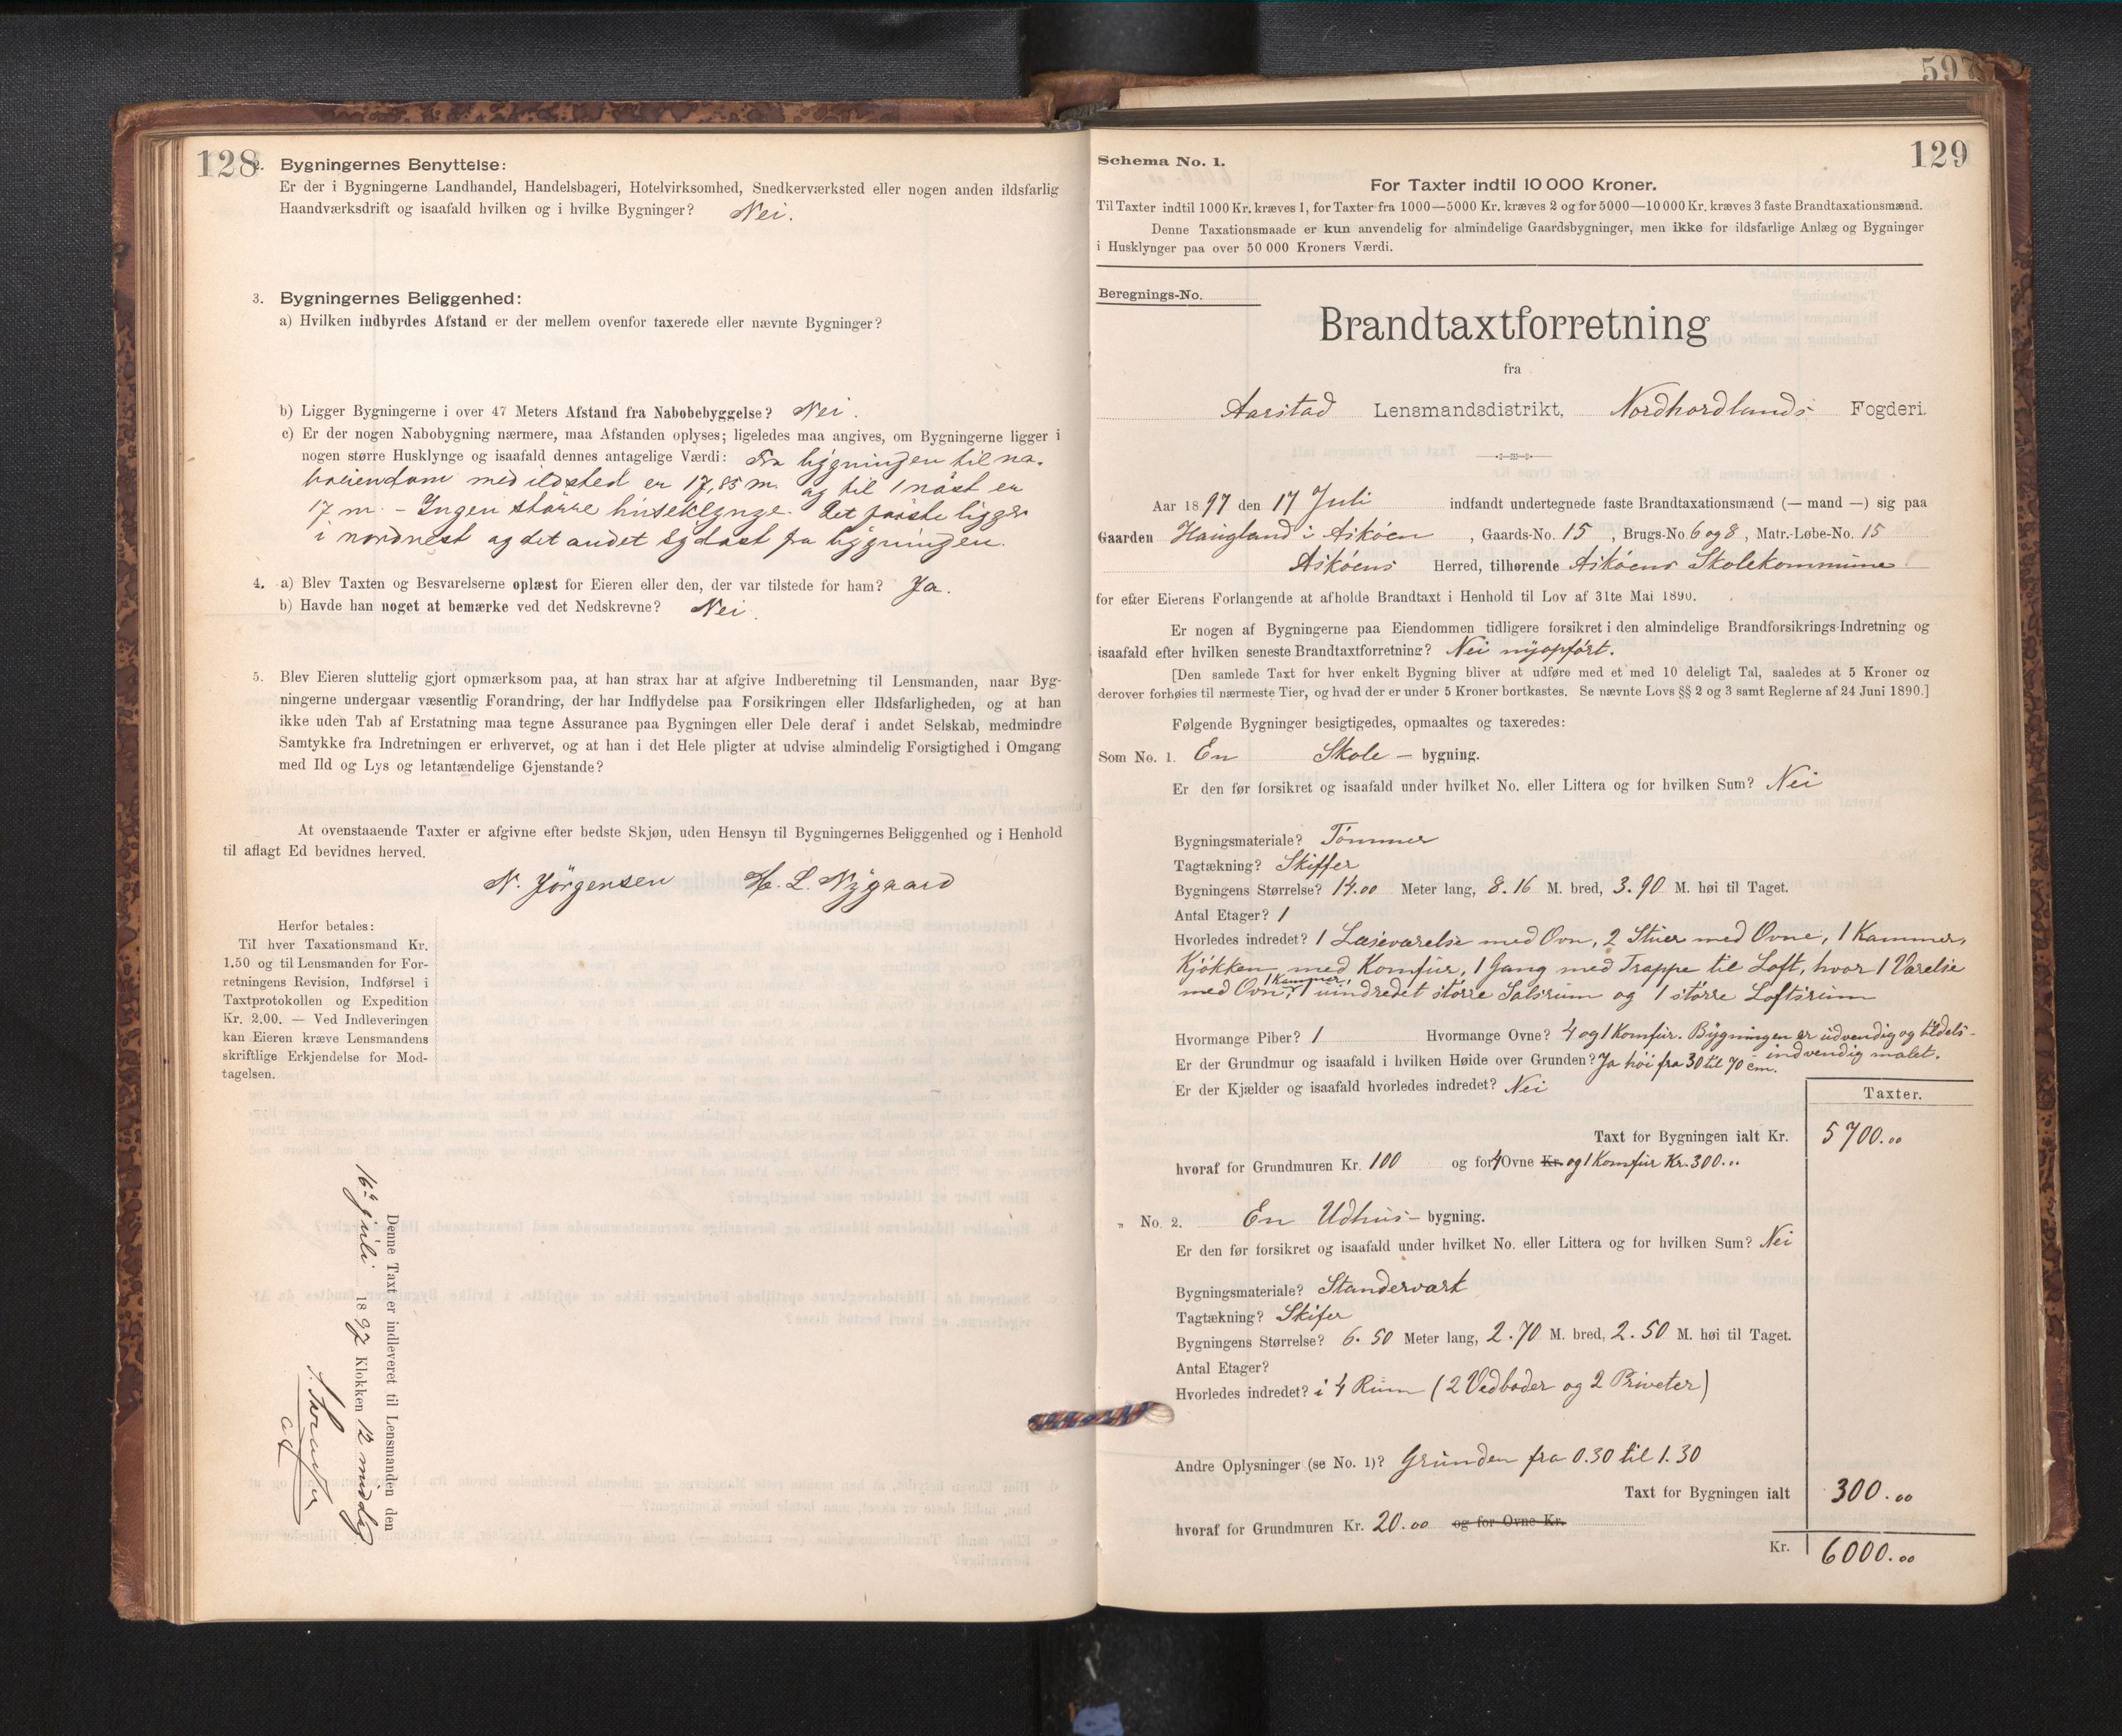 128
2. Bygningernes Benyttelse:
Er der i Bygningerne Landhandel, Handelsbageri, Hotelvirksomhed, Snedkerværksted eller nogen anden ildsfarlig
Haandværksdrift og isaafald hvilken og i hvilke Bygninger? Nei.
3. Bygningernes Beliggenhed:
a) Hvilken indbyrdes Afstand er der mellem ovenfor taxerede eller nævnte Bygninger?
b) Ligger Bygningerne i over 47 Meters Afstand fra Nabobebyggelse? Nei.
c) Er der nogen Nabobygning nærmere, maa Afstanden oplyses; ligeledes maa angives, om Bygningerne ligger i
nogen større Husklynge og isaafald dennes antagelige Værdi: Fra bygningen til na-
boeiendom med ildsted er 17,85 m. og til 1 nöst er
17 m. - Ingen större huseklynge. Det förste ligger
i nordvest og det andet sydost fra bygningen.
4. a) Blev Taxten og Besvarelserne oplæst for Eieren eller den, der var tilstede for ham? Ja.
b) Havde han noget at bemærke ved det Nedskrevne? Nei.
5. Blev Eieren sluttelig gjort opmærksom paa, at han strax har at afgive Indberetning til Lensmanden, naar Byg-
ningerne undergaar væsentlig Forandring, der har Indflydelse paa Forsikringen eller Ildsfarligheden, og at han
ikke uden Tab af Erstatning maa tegne Assurance paa Bygningen eller Dele deraf i andet Selskab, medmindre
Samtykke fra Indretningen er erhvervet, og at han i det Hele pligter at udvise almindelig Forsigtighed i Omgang
med Ild og Lys og letantændelige Gjenstande?
At ovenstaaende Taxter er afgivne efter bedste Skjøn, uden Hensyn til Bygningernes Beliggenhed og i Henhold
til aflagt Ed bevidnes herved.
N. Jörgensen H. L. Nygaard
Herfor betales:
Til hver Taxationsmand Kr.
1.50 og til Lensmanden for For-
retningens Revision, Indførsel i
Taxtprotokollen og Expedition
Kr. 2.00. — Ved Indleveringen
kan Eieren kræve Lensmandens
skriftlige Erkjendelse for Mod-
tagelsen.
Denne Taxt er indleveret til Lensmanden den
16de juli 1897 Klokken 12 middag
597
129
Schema No. 1.
For Taxter indtil 10 000 Kroner.
Til Taxter indtil 1000 Kr. kræves 1, for Taxter fra 1000—5000 Kr. kræves 2 og for 5000—10 000 Kr. kræves 3 faste Brandtaxationsmænd.
Denne Taxationsmaade er kun anvendelig for almindelige Gaardsbygninger, men ikke for ildsfarlige Anlæg og Bygninger
i Husklynger paa over 50 000 Kroners Værdi.
Beregnings-No.
Brandtaxtforretning
fra
Aarstad Lensmandsdistrikt, Nordhordlands Fogderi.
Aar 1897 den 17 Juli indfandt undertegnede faste Brandtaxationsmænd (— mand —) sig paa
Gaarden Haugland i Askøen, Gaards-No. 15, Brugs-No. 6 og 8, Matr.-Løbe-No. 15
Askøens Herred, tilhørende Askøens Skolekommune
for efter Eierens Forlangende at afholde Brandtaxt i Henhold til Lov af 31te Mai 1890.
Er nogen af Bygningerne paa Eiendommen tidligere forsikret i den almindelige Brandforsikrings-Indretning og
isaafald efter hvilken seneste Brandtaxtforretning? Nei nyopført.
[Den samlede Taxt for hver enkelt Bygning bliver at udføre med et med 10 deleligt Tal, saaledes at 5 Kroner og
derover forhøies til nærmeste Tier, og hvad der er under 5 Kroner bortkastes. Se nævnte Lovs §§ 2 og 3 samt Reglerne af 24 Juni 1890.]
Følgende Bygninger besigtigedes, opmaaltes og taxeredes:
Som No. 1. En Skole - bygning.
Er den før forsikret og isaafald under hvilket No. eller Littera og for hvilken Sum? Nei
Bygningsmateriale? Tømmer
Tagtækning? Skiffer
Bygningens Størrelse? 14.00 Meter lang, 8.16 M. bred, 3.90 M. høi til Taget.
Antal Etager? 1
Hvorledes indredet? 1 Læseværelse med Ovn, 2 Stuer med Ovne, 1 Kammer,
Kjøkken med Komfur, 1 Gang med Trappe til Loft, hvor 1 Værelse
med Ovn, 1 Kammer, 1 uindredet større Salsrum og 1 større Loftsrum
Hvormange Piber? 1 Hvormange Ovne? 4 og 1 Komfur. Bygningen er udvendig og tildels
Er der Grundmur og isaafald i hvilken Høide over Grunden? Ja høi fra 30 til 70 cm. - indvendig malet.
Er der Kjælder og isaafald hvorledes indredet? Nei
Taxter.
Taxt for Bygningen ialt Kr. 5700.00
hvoraf for Grundmuren Kr. 100 og for 4 Ovne Kr. og 1 Komfur Kr. 300..
" No. 2. En Udhus - bygning.
Er den før forsikret og isaafald under hvilket No. eller Littera og for hvilken Sum? Nei
Bygningsmateriale? Standerværk
Tagtækning? Skifer
Bygningens Størrelse? 6.50 Meter lang, 2.70 M. bred, 2.50 M. høi til Taget.
Antal Etager?
Hvorledes indredet? i 4 Rum (2 Vedboder og 2 Priveter)
Andre Oplysninger (se No. 1)? Grunden fra 0.30 til 1.30
Taxt for Bygningen ialt 300.00
hvoraf for Grundmuren Kr. 20.00 og for Ovne Kr.
Kr. 6000.00